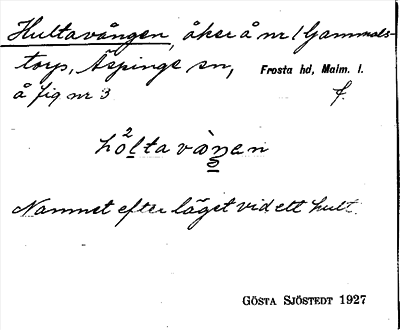 Hultavången, åker å nr 1 Gammals-
torp, Äspinge sn, Frosta hd, Malm. l.
å fig nr 3 f.
2
hòltavàŋen
Namnet efter läget vid ett hult.
GÖSTA SJÖSTEDT 1927